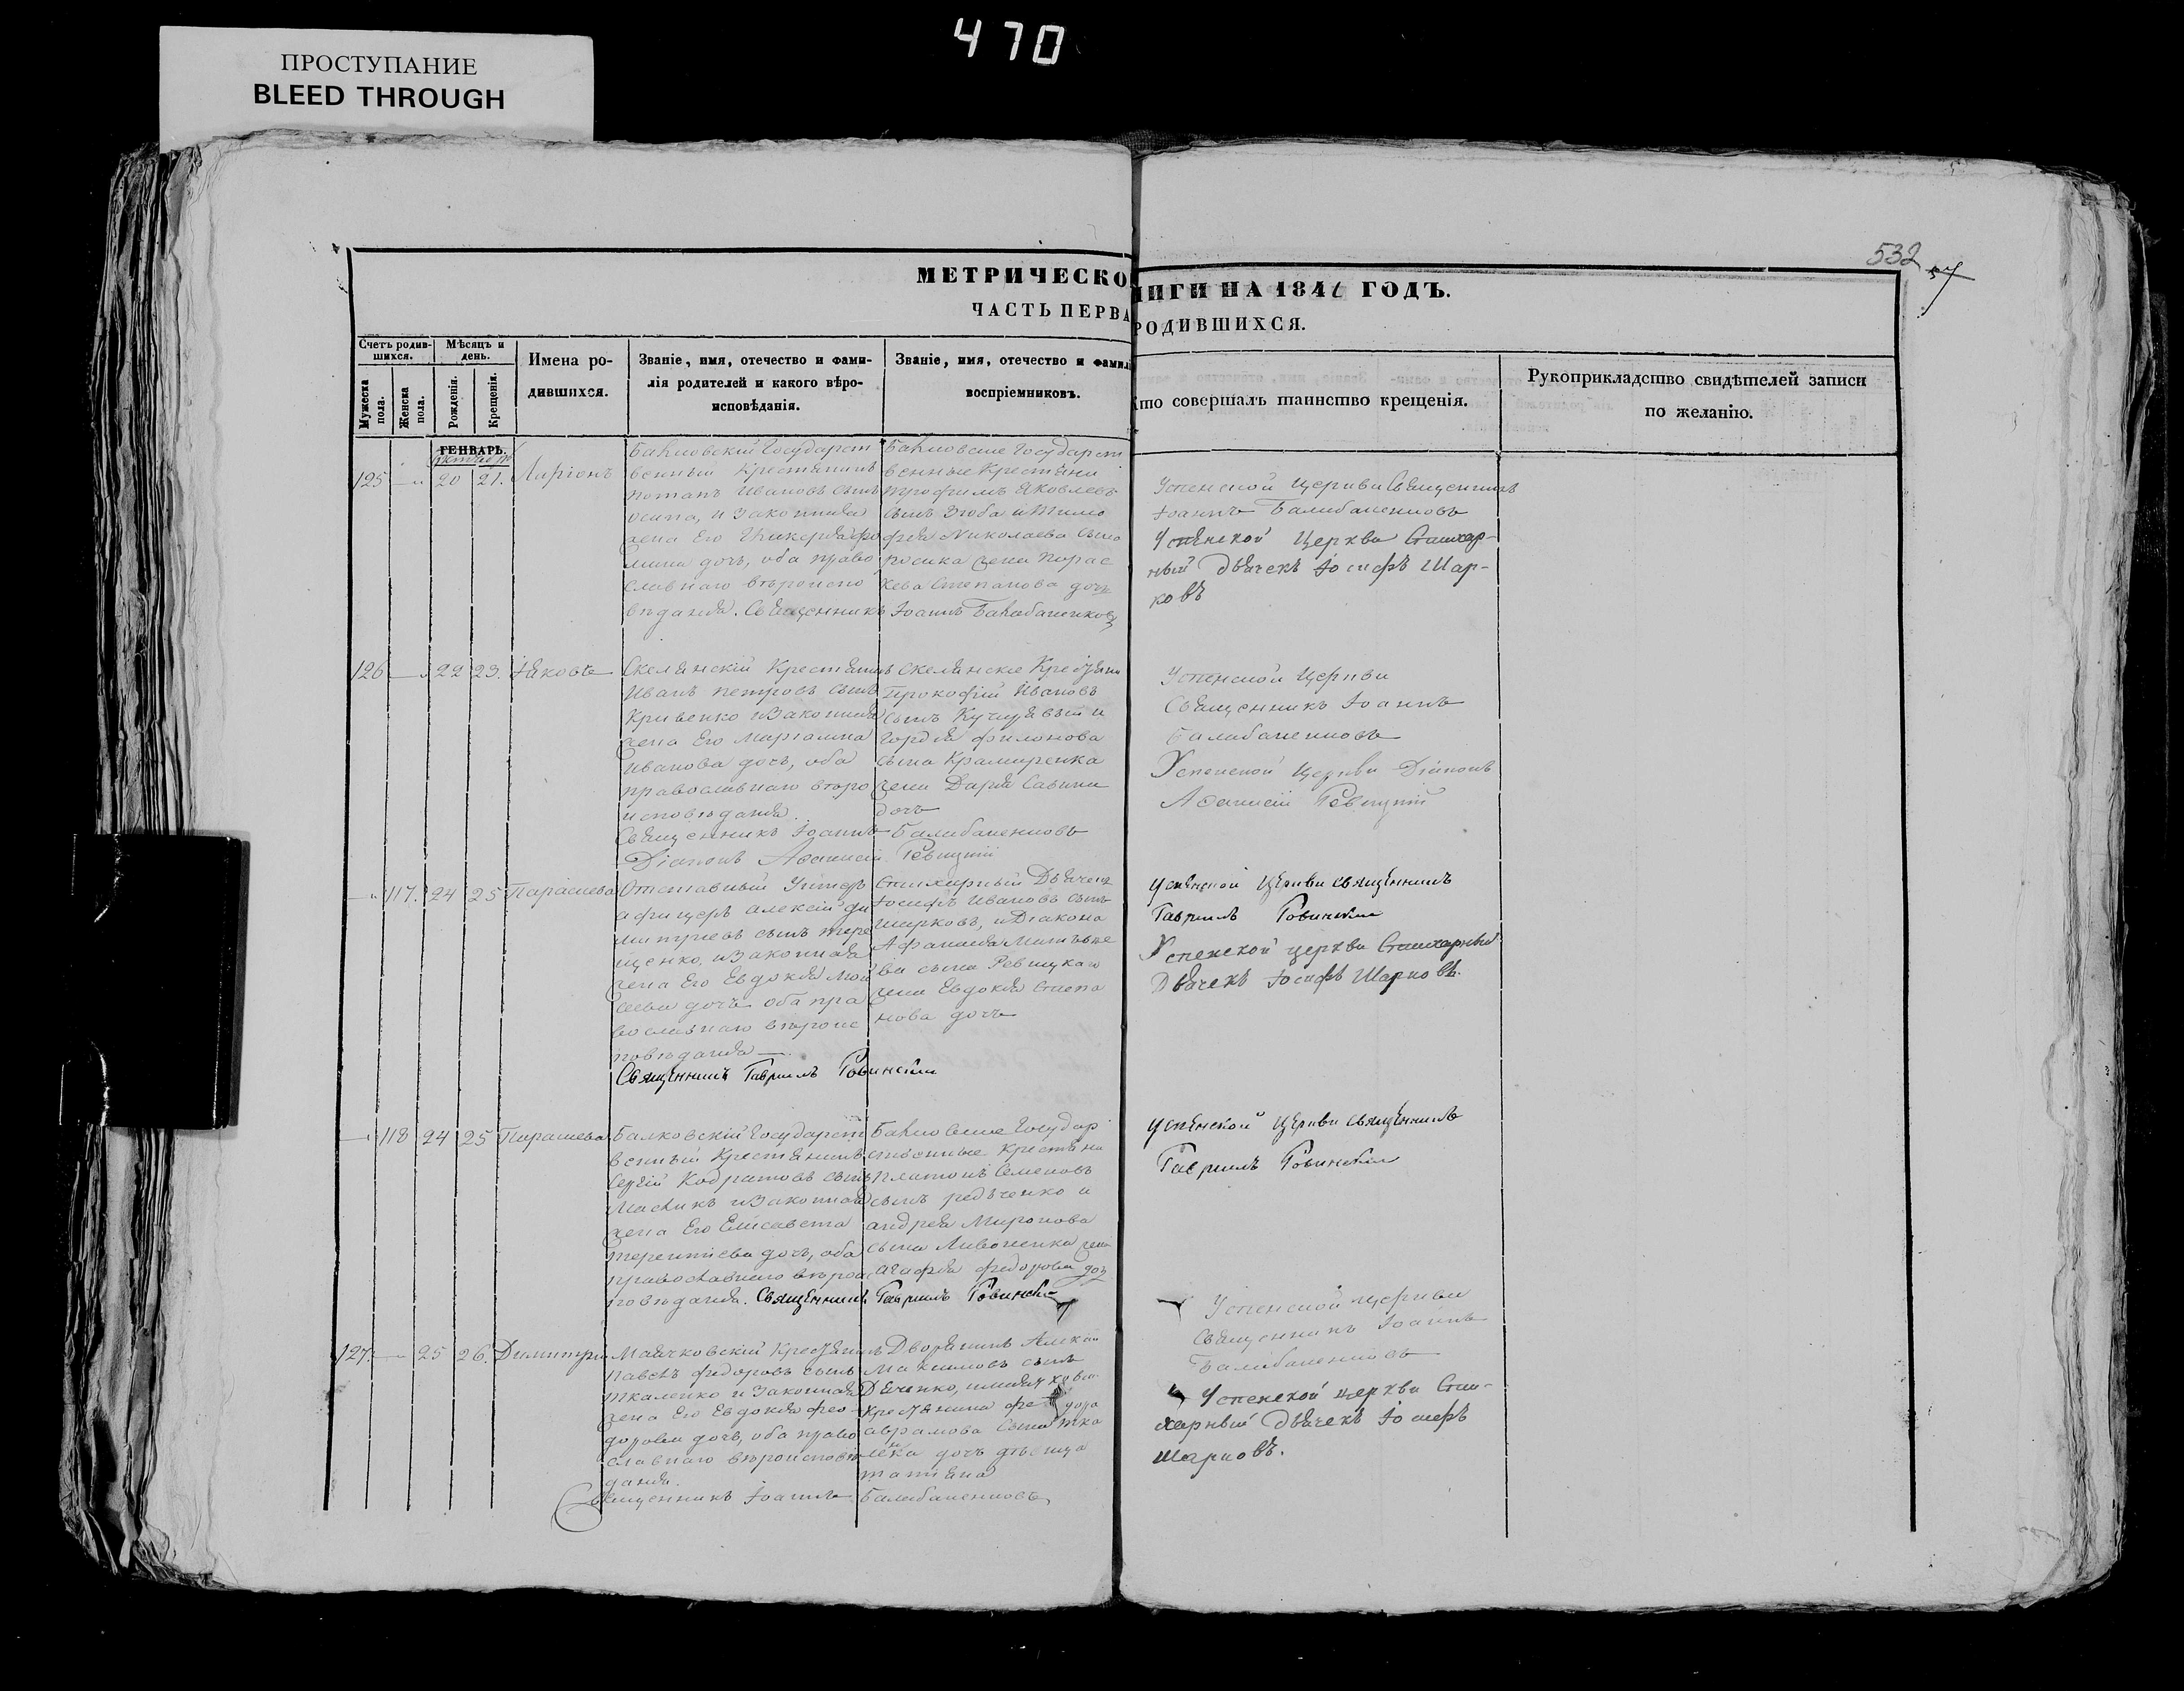 470
ПРОСТУПАНИЕ
BLEED THROUGH
532
57
МЕТРИЧЕСКО
НИГИ НА 1841 ГОДЪ.
ЧАСТЬ ПЕРВА
РОДИВШИХСЯ.
Счетъ родив-
шихся.
Мѣсяцъ и
день.
Мужеска
пола.
Женска
пола.
Рожденія.
Крещенія.
Имена ро-
дившихся.
Званіе, имя, отечество и фами-
лія родителей и какого вѣро-
исповѣданія.
Званіе, имя, отечество и фамилі
воспріемниковъ.
Кто совершалъ таинство крещенія.
Рукоприкладство свидѣтелей записи
по желанію.
ГЕНВАРЬ.
125 20 21. Ларіонъ
Государст
венный Крестянинъ
потапъ Ивановъ сынъ
и Законная
жена Его
мина дочь, оба право
славнаго вѣроиспо
вѣданія. Священникъ
Государст
венные Крестяни
трофимъ Яковлевъ
сынъ Зюба и Тимо
фея Николаева сына
жена Парас
кева Степанова дочь
Іоаннъ Балабаненковъ
Успенской Церкви Священникъ
Іоаннъ Балабаненковъ
Успенской Церкви Стихар-
ный Дьячекъ Іосифъ Шар-
ковъ
126 22 23. Іяковъ
Скелянскій Крестянинъ
Иванъ петровъ сынъ
Кривенко и Законная
жена Его Маріамна
Иванова дочь, оба
православнаго вѣро
исповѣданія.
Священникъ Іоаннъ Балабаненковъ
Діаконъ Аѳанасій Ревицкій
Скелянскіе Крестяни
Прокофій Ивановъ
сынъ и
Гордѣя филонова
сына Крамаренка
жена Дарія Савина
дочь
Успенской Церкви
Священникъ Іоаннъ
Балабаненковъ
Успенской Церкви Діаконъ
Аѳанасій Ревицкій
117. 24 25 Параскева
Отставный Унтеръ
афицеръ Алексій ди
митріевъ сынъ тере
щенко, и Законная
жена Его Евдокія Мои
сеева дочь оба пра
вославнаго вѣроис
повѣданія
Священникъ Гавріилъ Ровинскій
Стихарный Дьячекъ
Іосифъ Ивановъ сынъ
Шарковъ, и Діакона
Афанасія Матвѣе
ва сына Ревицкаго
жена Евдокія Степа
нова дочь
Успенской Церкви священникъ
Гавріилъ Ровинскій
Успенской церкви Стихарный
Дьячекъ Іосифъ Шарковъ.
118 24 25 Параскева
Балковскій Государст
венный Крестянинъ
Сергій Кодратовъ сынъ
Масликъ и Законная
жена Его Елисавета
терентіева дочь, оба
православнаго вѣроис
повѣданія. Священникъ Гавріилъ Ровинскій
Государ
ственные Крестяни
Платонъ Семеновъ
сынъ редченко и
андрея Миронова
сына жена
агафія федорова дочь
Успенской Церкви священникъ
Гавріилъ Ровинскій
127. 25 26. Димитрій
Маячковскій Крестянинъ
павелъ федоровъ сынъ
ткаленко и Законная
жена Его Евдокія фео
дорова дочь, оба право
славнаго вѣроисповѣ
данія.
Священникъ Іоаннъ Балабаненковъ
Дворянинъ
Максимовъ сынъ
Дяченко,
Крестянина феодора
аврамова сына тка
ленка дочь дѣвица
татіяна
Успенской Церкви
Священникъ Іоаннъ
Балабаненковъ
Успенской церкви Сти-
харный Дьячекъ Іосифъ
Шарковъ.